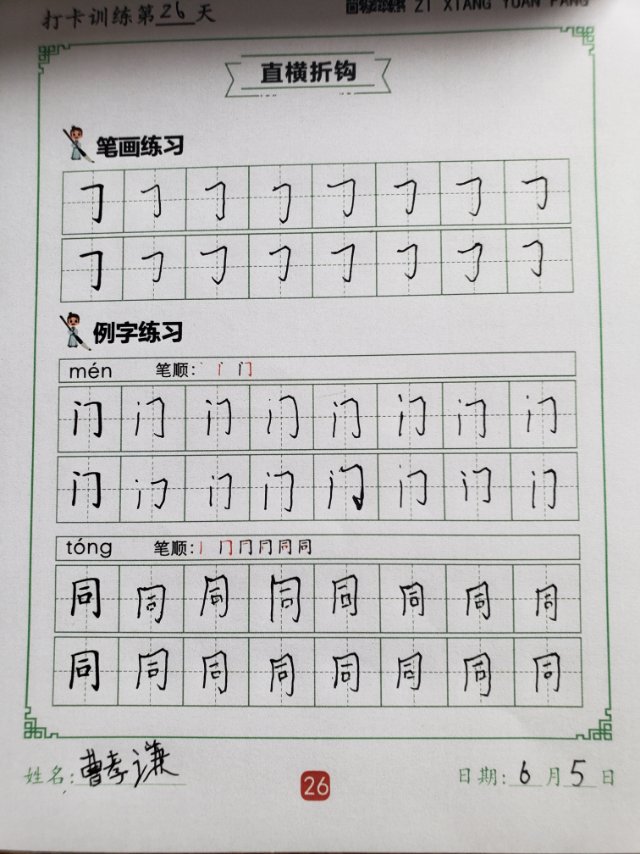 打卡训练第26天
ZI XIANG YUAN FANG
直横折钩
笔画练习
㇆ ㇆ ㇆ ㇆ ㇆ ㇆ ㇆ ㇆
㇆ ㇆ ㇆ ㇆ ㇆ ㇆ ㇆ ㇆
例字练习
mén 笔顺: 丶 门
门 门 门 门 门 门 门 门
门 门 门 门 门 门 门 门
tóng 笔顺: 丨 冂 冂 同 同
同 同 同 同 同 同 同 同
同 同 同 同 同 同 同 同
姓名: 曹孝谦
26
日期: 6月5日